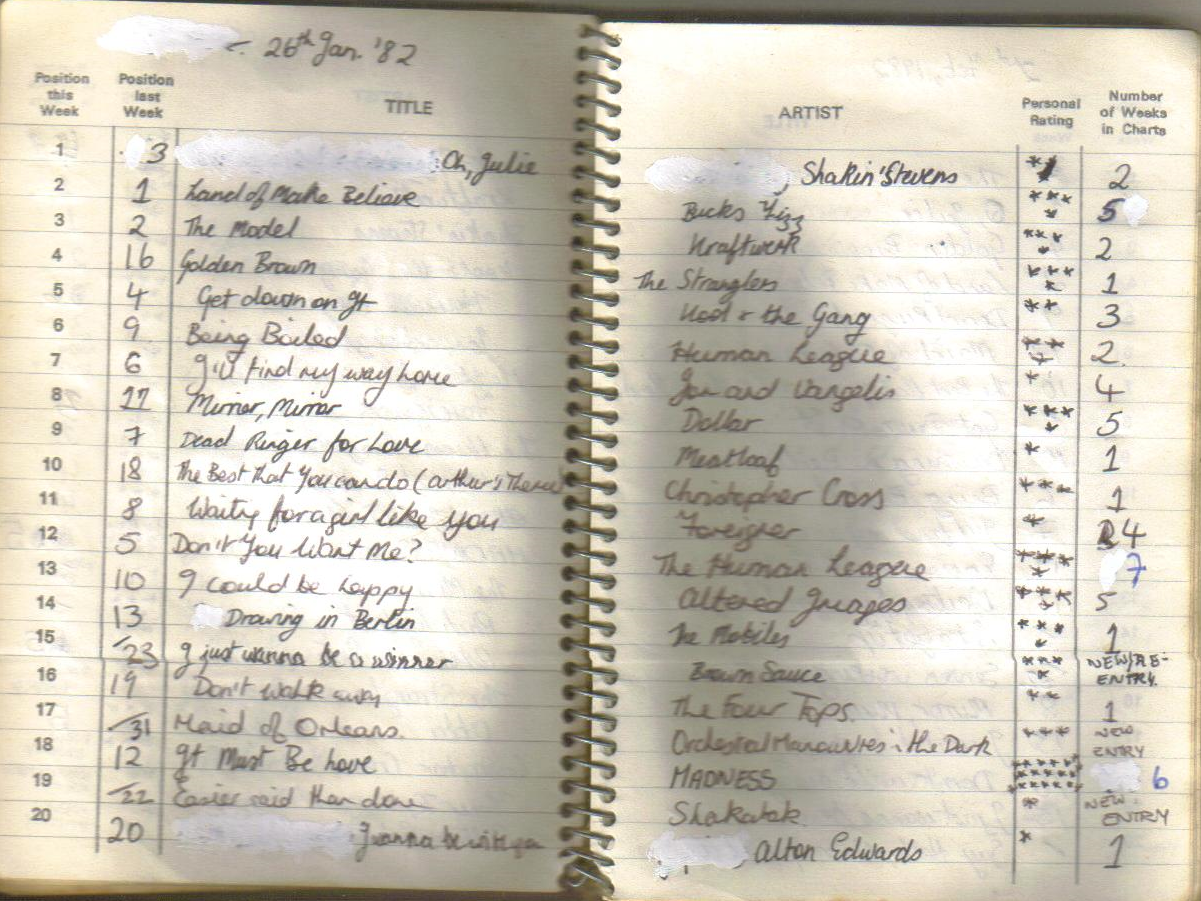 26th Jan. '82
Position this Week Position last Week TITLE ARTIST Personal Rating Number of Weeks in Charts
1 3 Oh, Julie Shakin' Stevens ** 2
2 1 Land of Make Believe Bucks Fizz **** 5
3 2 The Model Kraftwerk **** 2
4 16 Golden Brown The Stranglers **** 1
5 4 Get down on It Kool & the Gang ** 3
6 9 Being Boiled Human League *** 2
7 6 I'll find my way home Jon and Vangelis * 4
8 17 Mirror, Mirror Dollar **** 5
9 7 Dead Ringer for Love Meatloaf * 1
10 18 The Best that You can do (Arthur's Theme) Christopher Cross *** 1
11 8 Waiting for a girl like you Foreigner * 4
12 5 Don't You Want Me? The Human League **** 7
13 10 I could be happy Altered Images **** 5
14 13 Drowing in Berlin The Mobiles **** 1
15 23 I just wanna be a winner Brown Sauce **** NEW/RE-ENTRY
16 19 Don't walk away The Four Tops ** 1
17 31 Maid of Orleans Orchestral Manouvres in the Dark *** NEW ENTRY
18 12 It Must Be Love MADNESS 6
19 22 Easier said than done Shakatak * NEW ENTRY
20 20 I wanna be with you Alton Edwards * 1